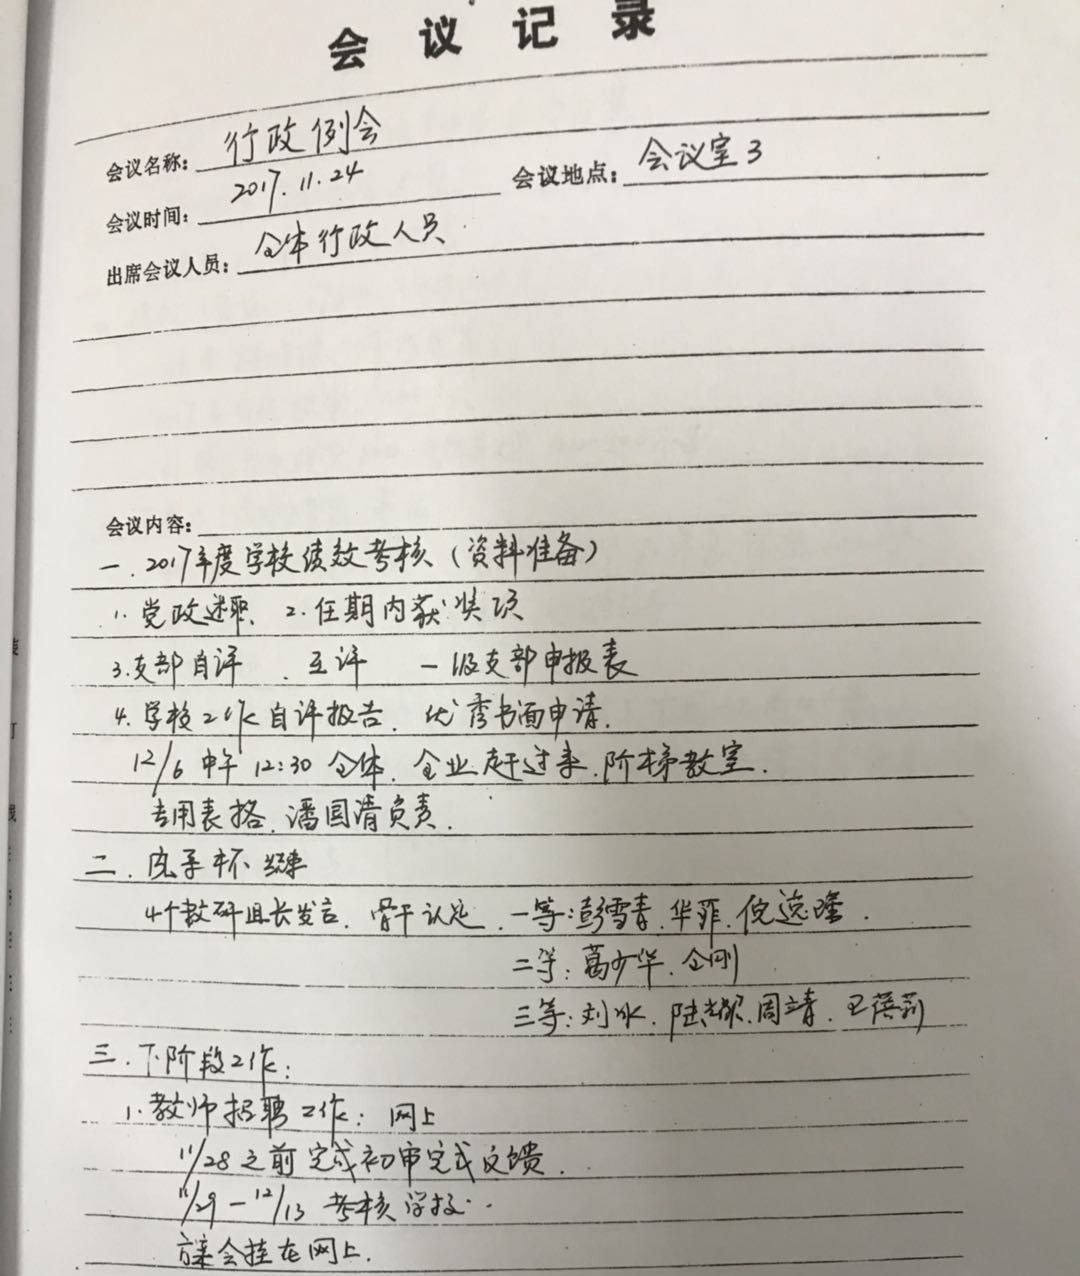 会议记录
会议名称：行政例会
会议时间：2017.11.24 会议地点：会议室3
出席会议人员：全体行政人员
会议内容：
一.2017年度学校绩效考核（资料准备）
1.党政述职、2.任期内获奖项
3.支部自评、互评 一级支部申报表
4.学校工作自评报告、优秀书面申请.
12/6 中午 12:30 全体、企业赶过来.阶梯教室.
专用表格.潘国清负责.
二. 杯
4个教研组长发言、骨干认定、一等:彭雪青.华菲.倪
二等:葛少华.仝刚
三等:刘冰、陆 .周立青.
三.下阶段工作:
1.教师招聘工作:网上
11/28之前完成初审完成反馈.
11/29-12/13 考核学校.
方案会挂在网上.